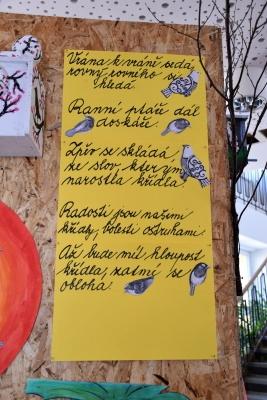 Vrána k vráně sedá,
rovný rovného si
hledá.
Ranní ptáče dál
doskáče.
Zpěv se skládá
ze slov, kterým
narostla křídla.
Radosti jsou našimi
křídly, bolesti ostruhami.
Až bude mít hloupost
křídla, zatmí se
obloha.